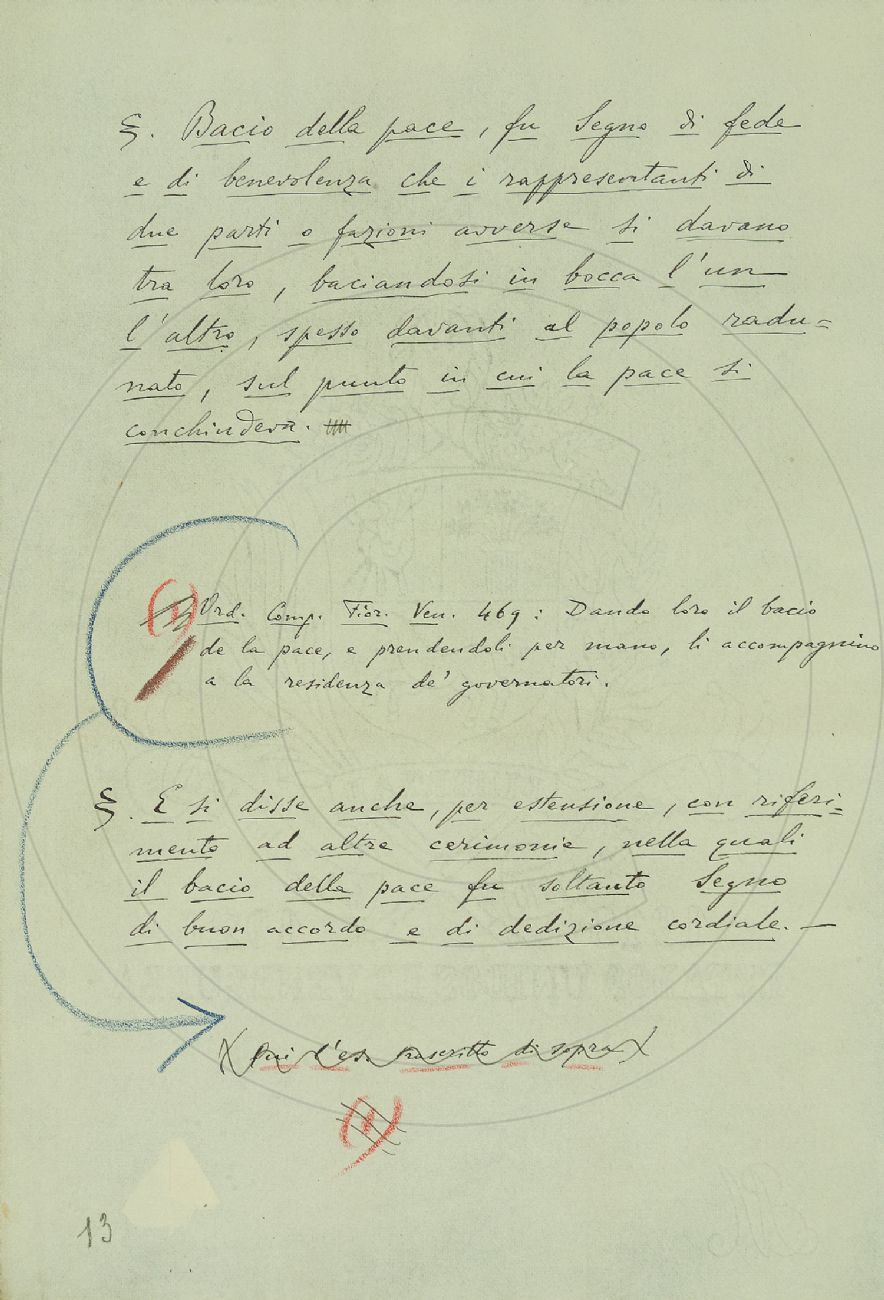 §. Bacio della pace, fu Segno di fede
e di benevolenza che i rappresentanti di
due parti o fazioni avverse si davano
tra loro, baciandosi in bocca l'un
l'altro, spesso davanti al popolo radu=
nato, sul punto in cui la pace si
conchiudeva.
(1) Ord. Comp. Fior. Ven. 469: Dando loro il bacio
de la pace, e prendendoli per mano, li accompagnino
a la residenza de' governatori.
§. E si disse anche, per estensione, con riferi=
mento ad altre cerimonie, nella quali
il bacio della pace fu soltanto Segno
di buon accordo e di dedizione cordiale. —
(Qui l'es. trascritto di sopra)
(1)
13